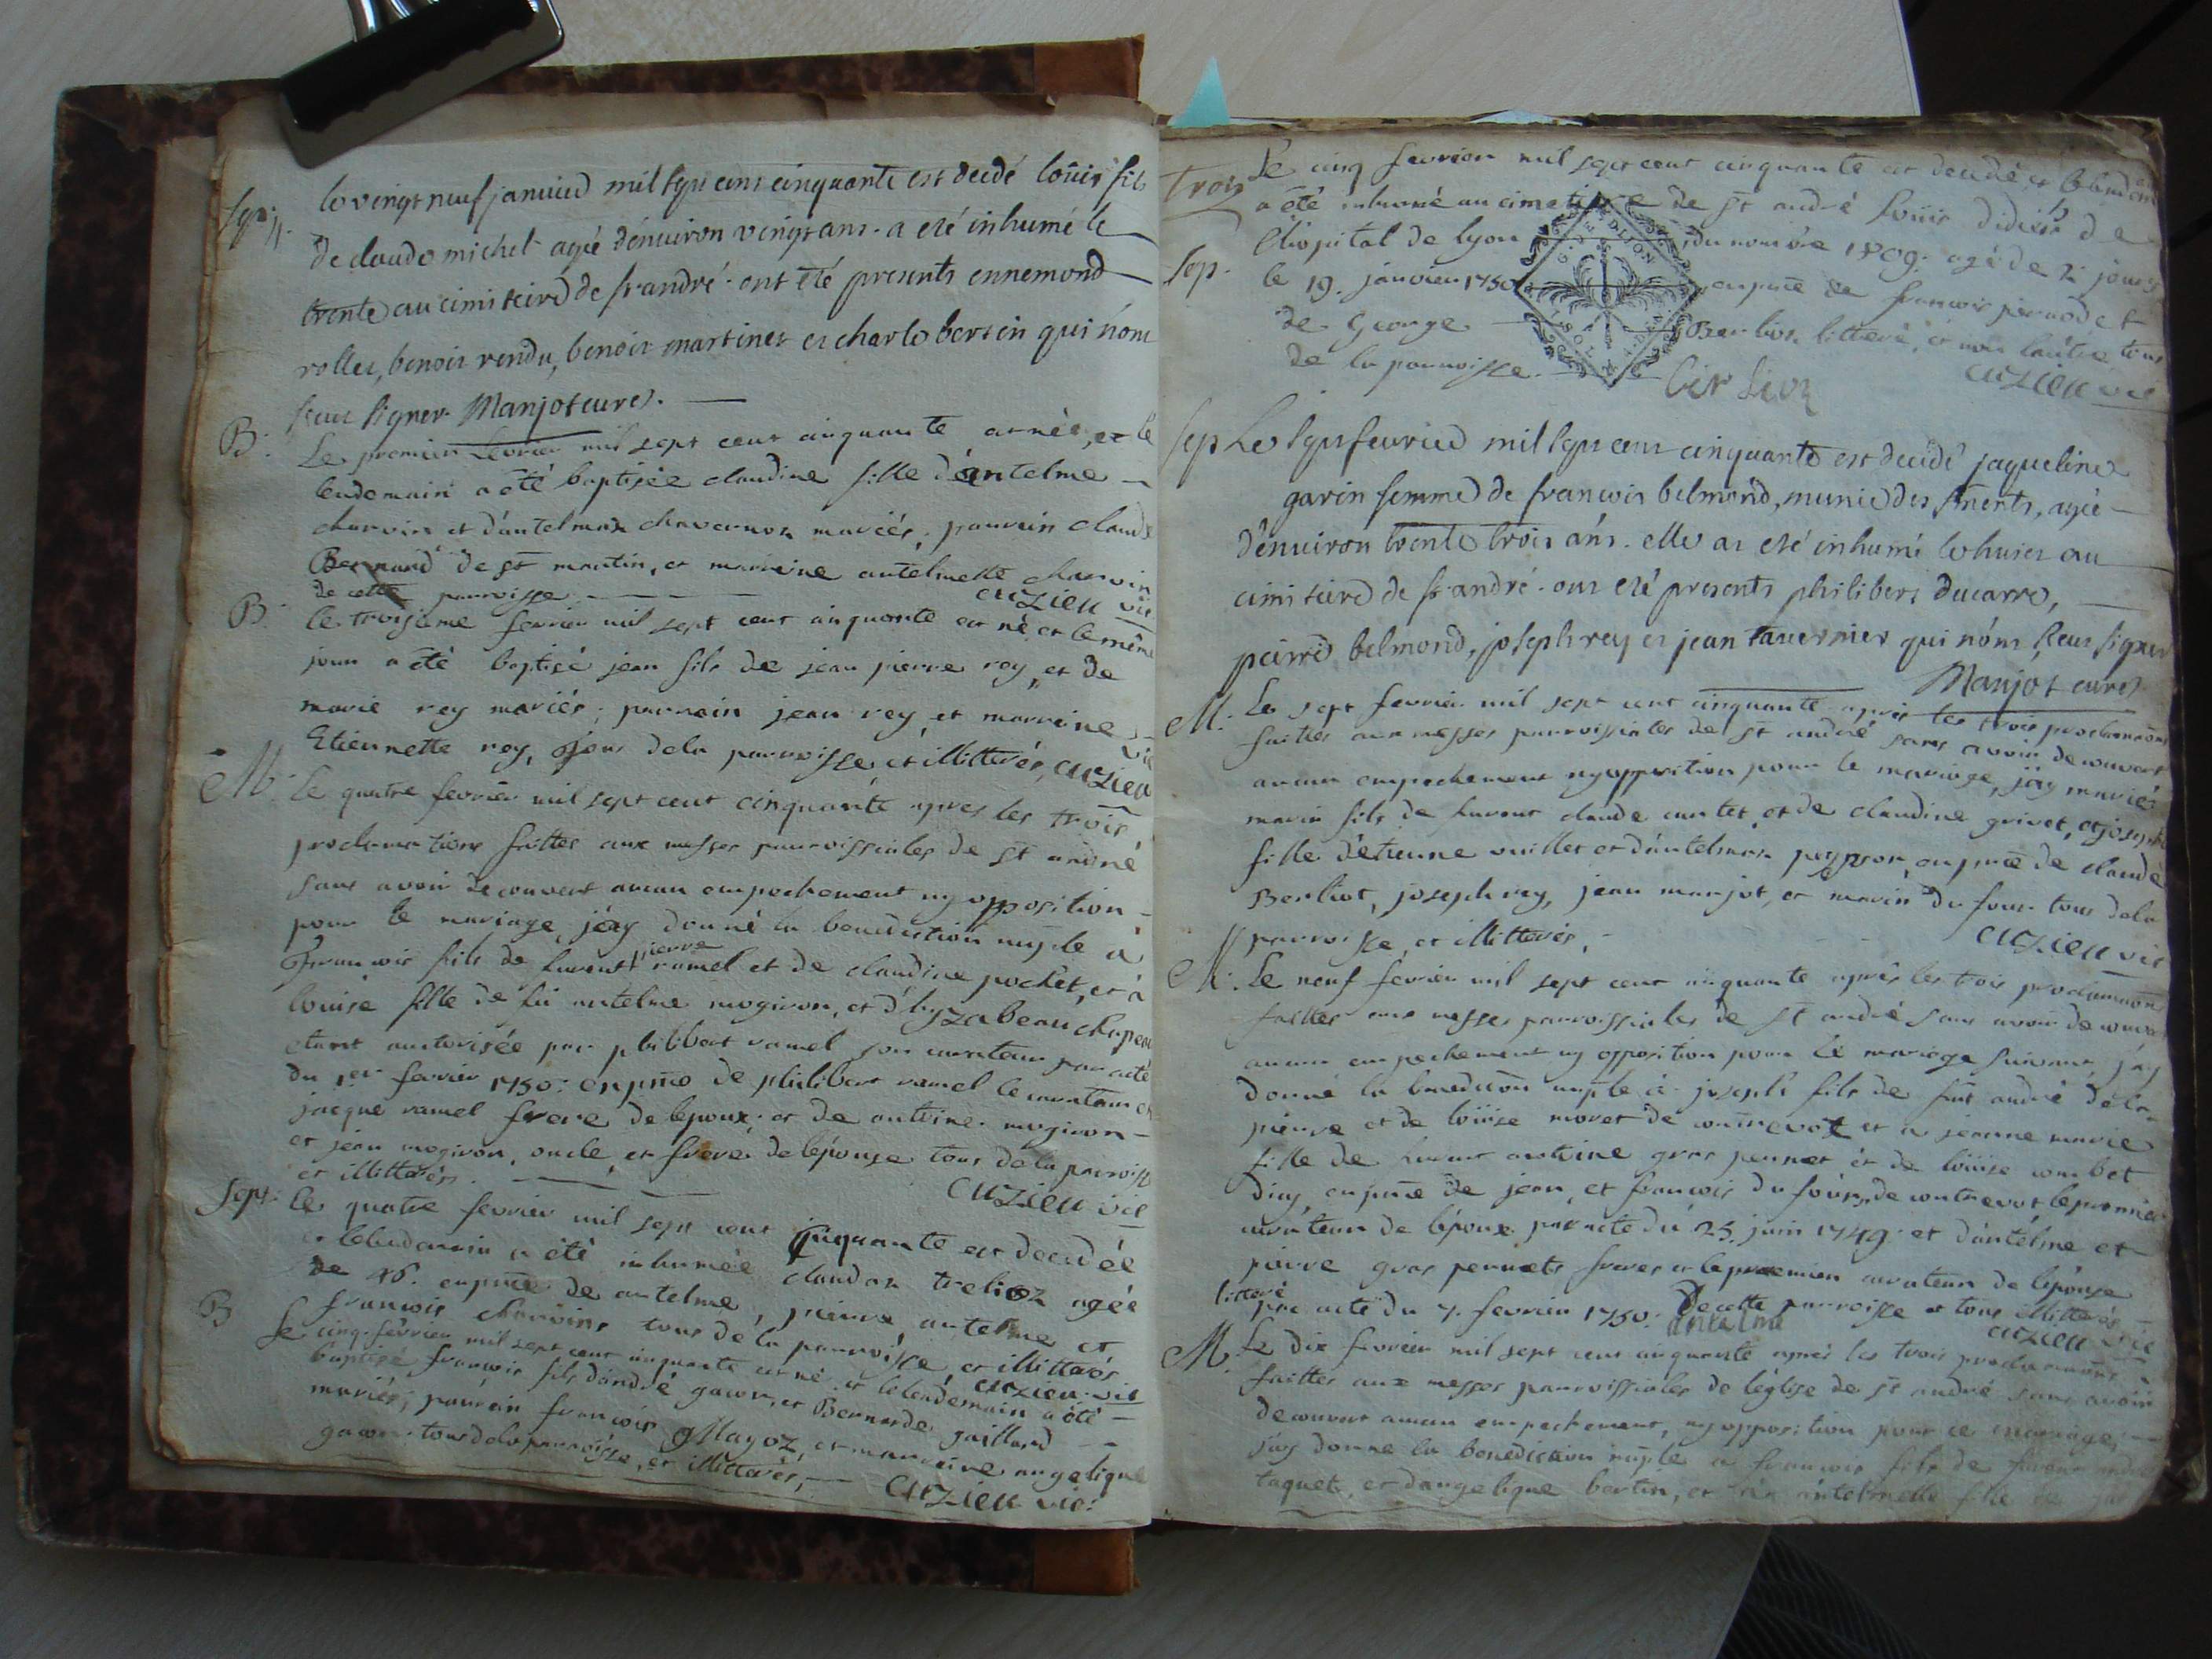 Sep.
le vingt neuf janvied mil sept cens cinquante est decedé loüis fils
de claude michel agé d'énuiron vingt ans. a eté inhumé le
trente au cimitiere de st andré. ont été presents ennemond
rollet, benoit rendu, benoit martinet et charle bertin qui n'ont
sceus signer. Manjot curé.
B.
Le premier fevrier mil sept cent cinquante est née, et le
lendemain a été baptisée claudine fille d'antelme
charvin et d'antelmaz chavanon mariés, parrain claude
Bernand de st martin, et marraine antelmette charvin
de cette parroisse. cuzieu vic
B.
le troisieme fevrier mil sept cent cinquante est né, et le même
jour a été baptisé jean fils de jean pierre rey, et de
marie rey mariés; parrain jean rey et marreine
Etiennette rey, tous dela parroisse et illitterés, cuzieu vic
M.
Le quatre fevrier mil sept cent cinquante apres les trois
proclamations faittes aux messes parroissiales de st andré
sans avoir decouvert aucun empechement ny opposition
pour le mariage, j'ay donné la benediction nuple à
francois fils de furent pierre ramel et de claudine pochet, et à
loüise fille de fû antelme mogiron, et d'lyzabeau chapeau
etant autorisée par philibert ramel son curateur par acte
du 1er fevrier 1750: en pnce de philibert ramel le curateur et
jacque ramel frere de lepoux. et de antoine mogiron
et jean mogiron, oncle, et frere de lépouse tous de la parroisse
et illitterés. cuzieu vic
Sept.
Le quatre fevrier mil sept cent cinquante est decedée
et lelendemain a été inhumée claudaz trelioz agée
de 46. en pnce de antelme, pierre, antelme et
francois charvins tous de la parroisse et illitterés
cuzieu vic
B
Le cinq fevrier mil sept cent cinquante est né et lelendemain a été
baptisé francois fils d'andré gacon, et Bernarde gaillard
mariés; parrain francois Mayoz, et marraine angelique
gacon tous dela parroisse, et illitterés, cuzieu vic:
trois
Le cinq fevrier mil sept cent cinquante est decedé, et lelendemain
a été inhumé au cimetiere de st andré loüis didier de
Sep.
l'hopital de lyon du nombre 1809. agé de 2 jours
G. DE DIJON
le 19. janvier 1750 en pnce de francois pernodet
de George Berlion litteré, et non l'autre tous
de la parroisse. cuzieu vic
Berlion
Sep
Le sept feuried mil sept cens cinquante est decédé jaqueline
garin femme de francois belmond, munie des sments, agée
d'énuiron trente trois ans. elle as eté inhumé le huict au
cimitiere de st andré. ont eté presents philibert ducarre,
peirre belmond, joseph rey et jean tavernier qui n'ont sceus signer
Manjot curé
M.
Le sept fevrier mil sept cent cinquante après les trois proclamaons
faittes aux messes parroissiales de st andré sans avoir decouvert
aucun empechement ny opposition pour le mariage, jay mariés
marin fils de furent claude curtet, et de claudine grivet, et josephte
fille d'etienne vuillet et d'antelmaz peysson, en pnce de claude
Berliot, joseph rey, jean manjot, et marin du four tous dela
parroisse, et illitterés. cuzieu vic
M.
Le neuf fevrier mil sept cent cinquante aprés les trois proclamaons
faittes aux messes parroissiales de st andré sans avoir decouvert
aucun empechement ny opposition pour le mariage suivant, j'ay
donné la benediction nuple à joseph fils de fût andré dela
pierre et de loüise moret de contrevoz et a jeanne marie
fille de furent antoine gros pernet et de loüise combet
d'icy, en pnce de jean, et francois du four, de contrevoz le premier
curateur de lépoux par acte du 25. juin 1749. et d'antelme et
pierre gros pernets freres et le premier curateur de lépouse
par acte du 7. fevrier 1750. de cette parroisse et tous illitterés
litteré antelme cuzieu vic
M.
Le dix fevrier mil sept cent cinquante aprés les trois proclamaons
faittes aux messes parroissiales de léglise de st andré sans avoir
decouvert aucun empechement, ny opposition pour ce mariage,
j'ay donné la benediction nuple a francois fils de furent
taquet, et d'angelique bertin, et à antelmette fille de